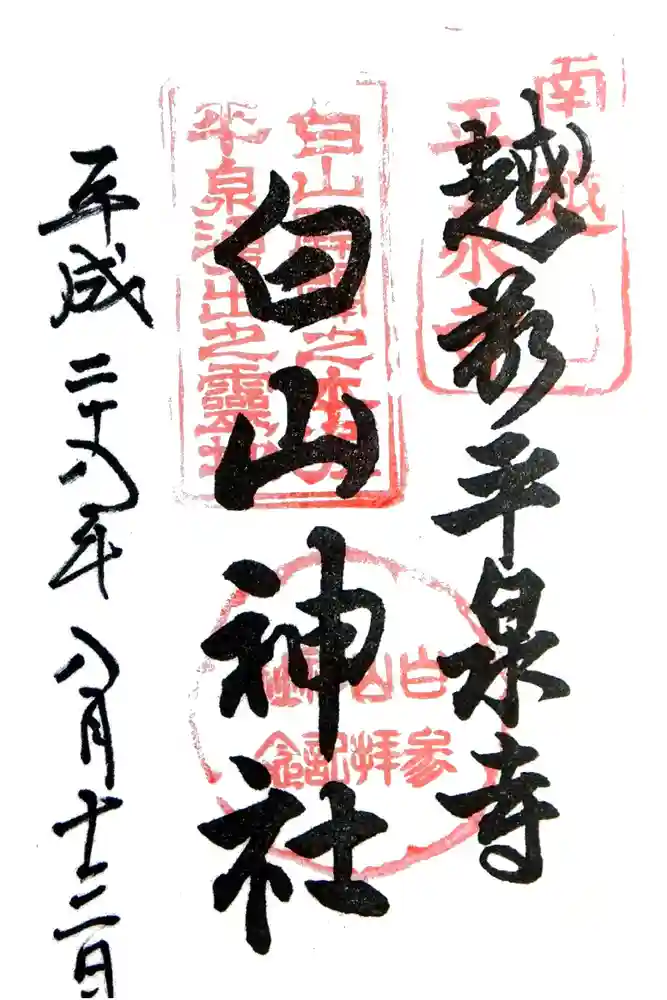 越前平泉寺
白山神社
平成二十八年八月十二日
南越
平泉寺
白山
平泉涌出之靈地
白山神社
参拝記念